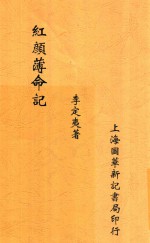 紅顏薄命記
李定夷著
上海國華新記書局印行